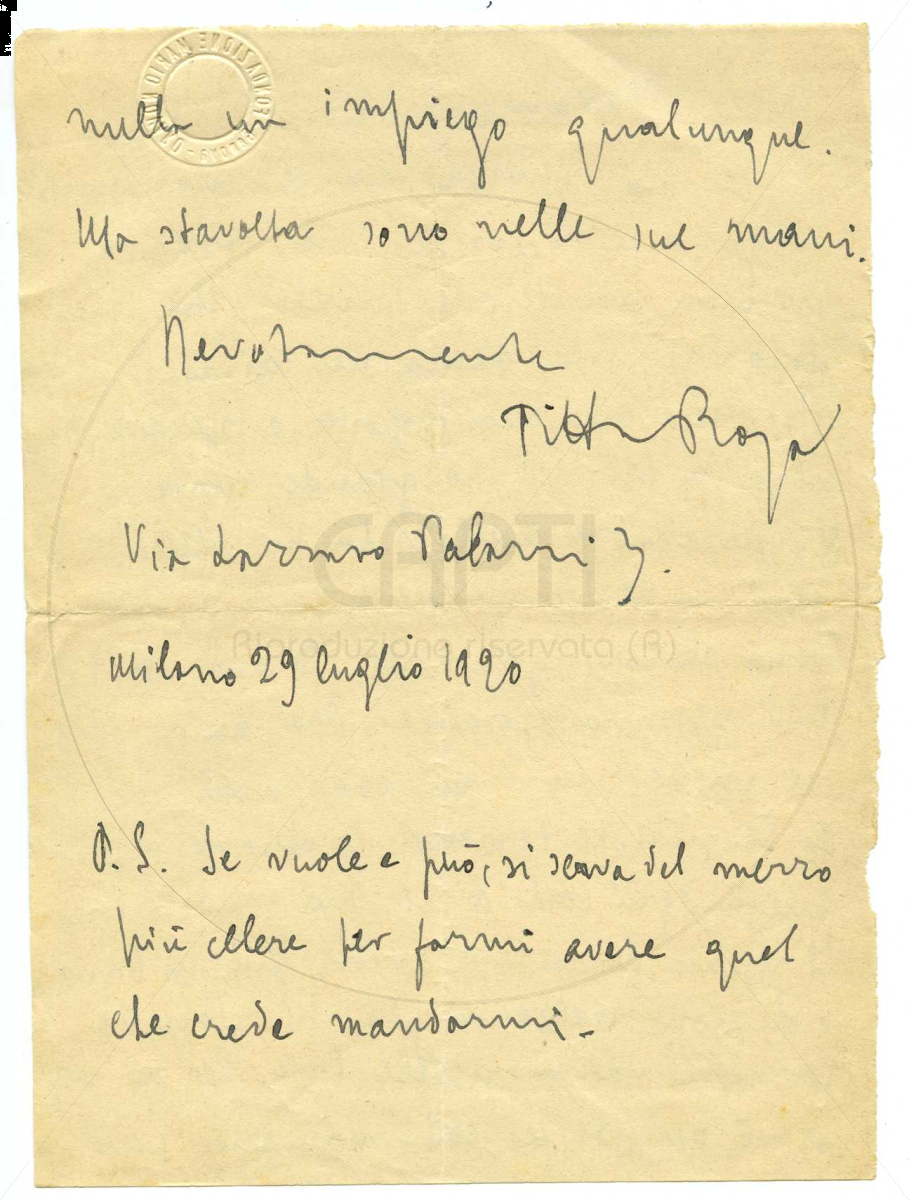 nulla un impiego qualunque.
Ma stavolta sono nelle sue mani.
Devotamente
Titta Rosa
Via Lazzaro Palazzi 3.
Milano 29 luglio 1920
P.S. Se vuole e può, si serva del mezzo
più celere per farmi avere quel
che crede mandarmi.
CAPTI
Riproduzione riservata (R)